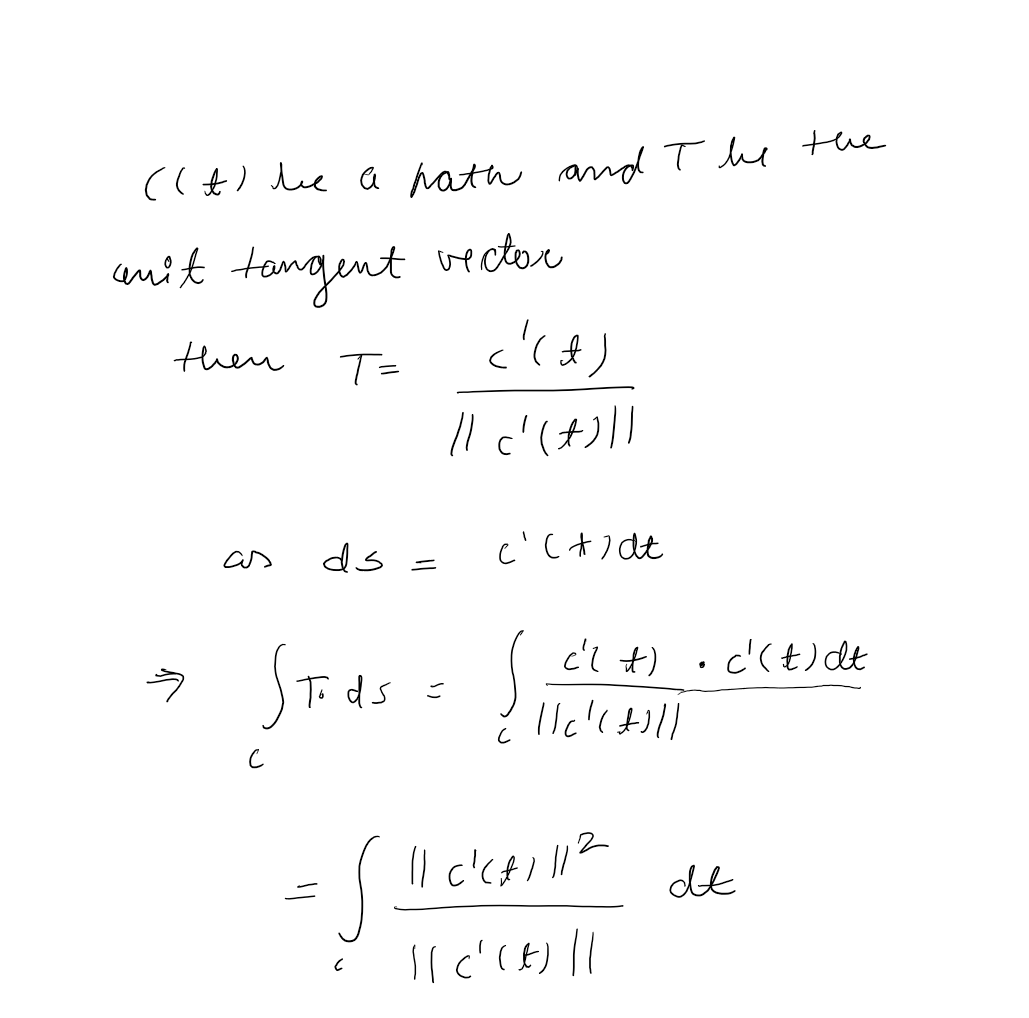 c(t) be a path and T be the
unit tangent vector
then T = c'(t) / ||c'(t)||
as ds = c'(t)dt
⇒ ∫_C T · ds = ∫_C c'(t) / ||c'(t)|| · c'(t)dt
= ∫_C ||c'(t)||² / ||c'(t)|| dt